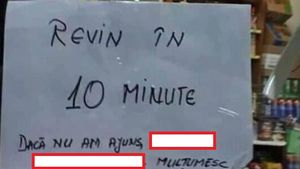 REVIN ÎN
10 MINUTE
DACĂ NU AM AJUNS,
MULȚUMESC